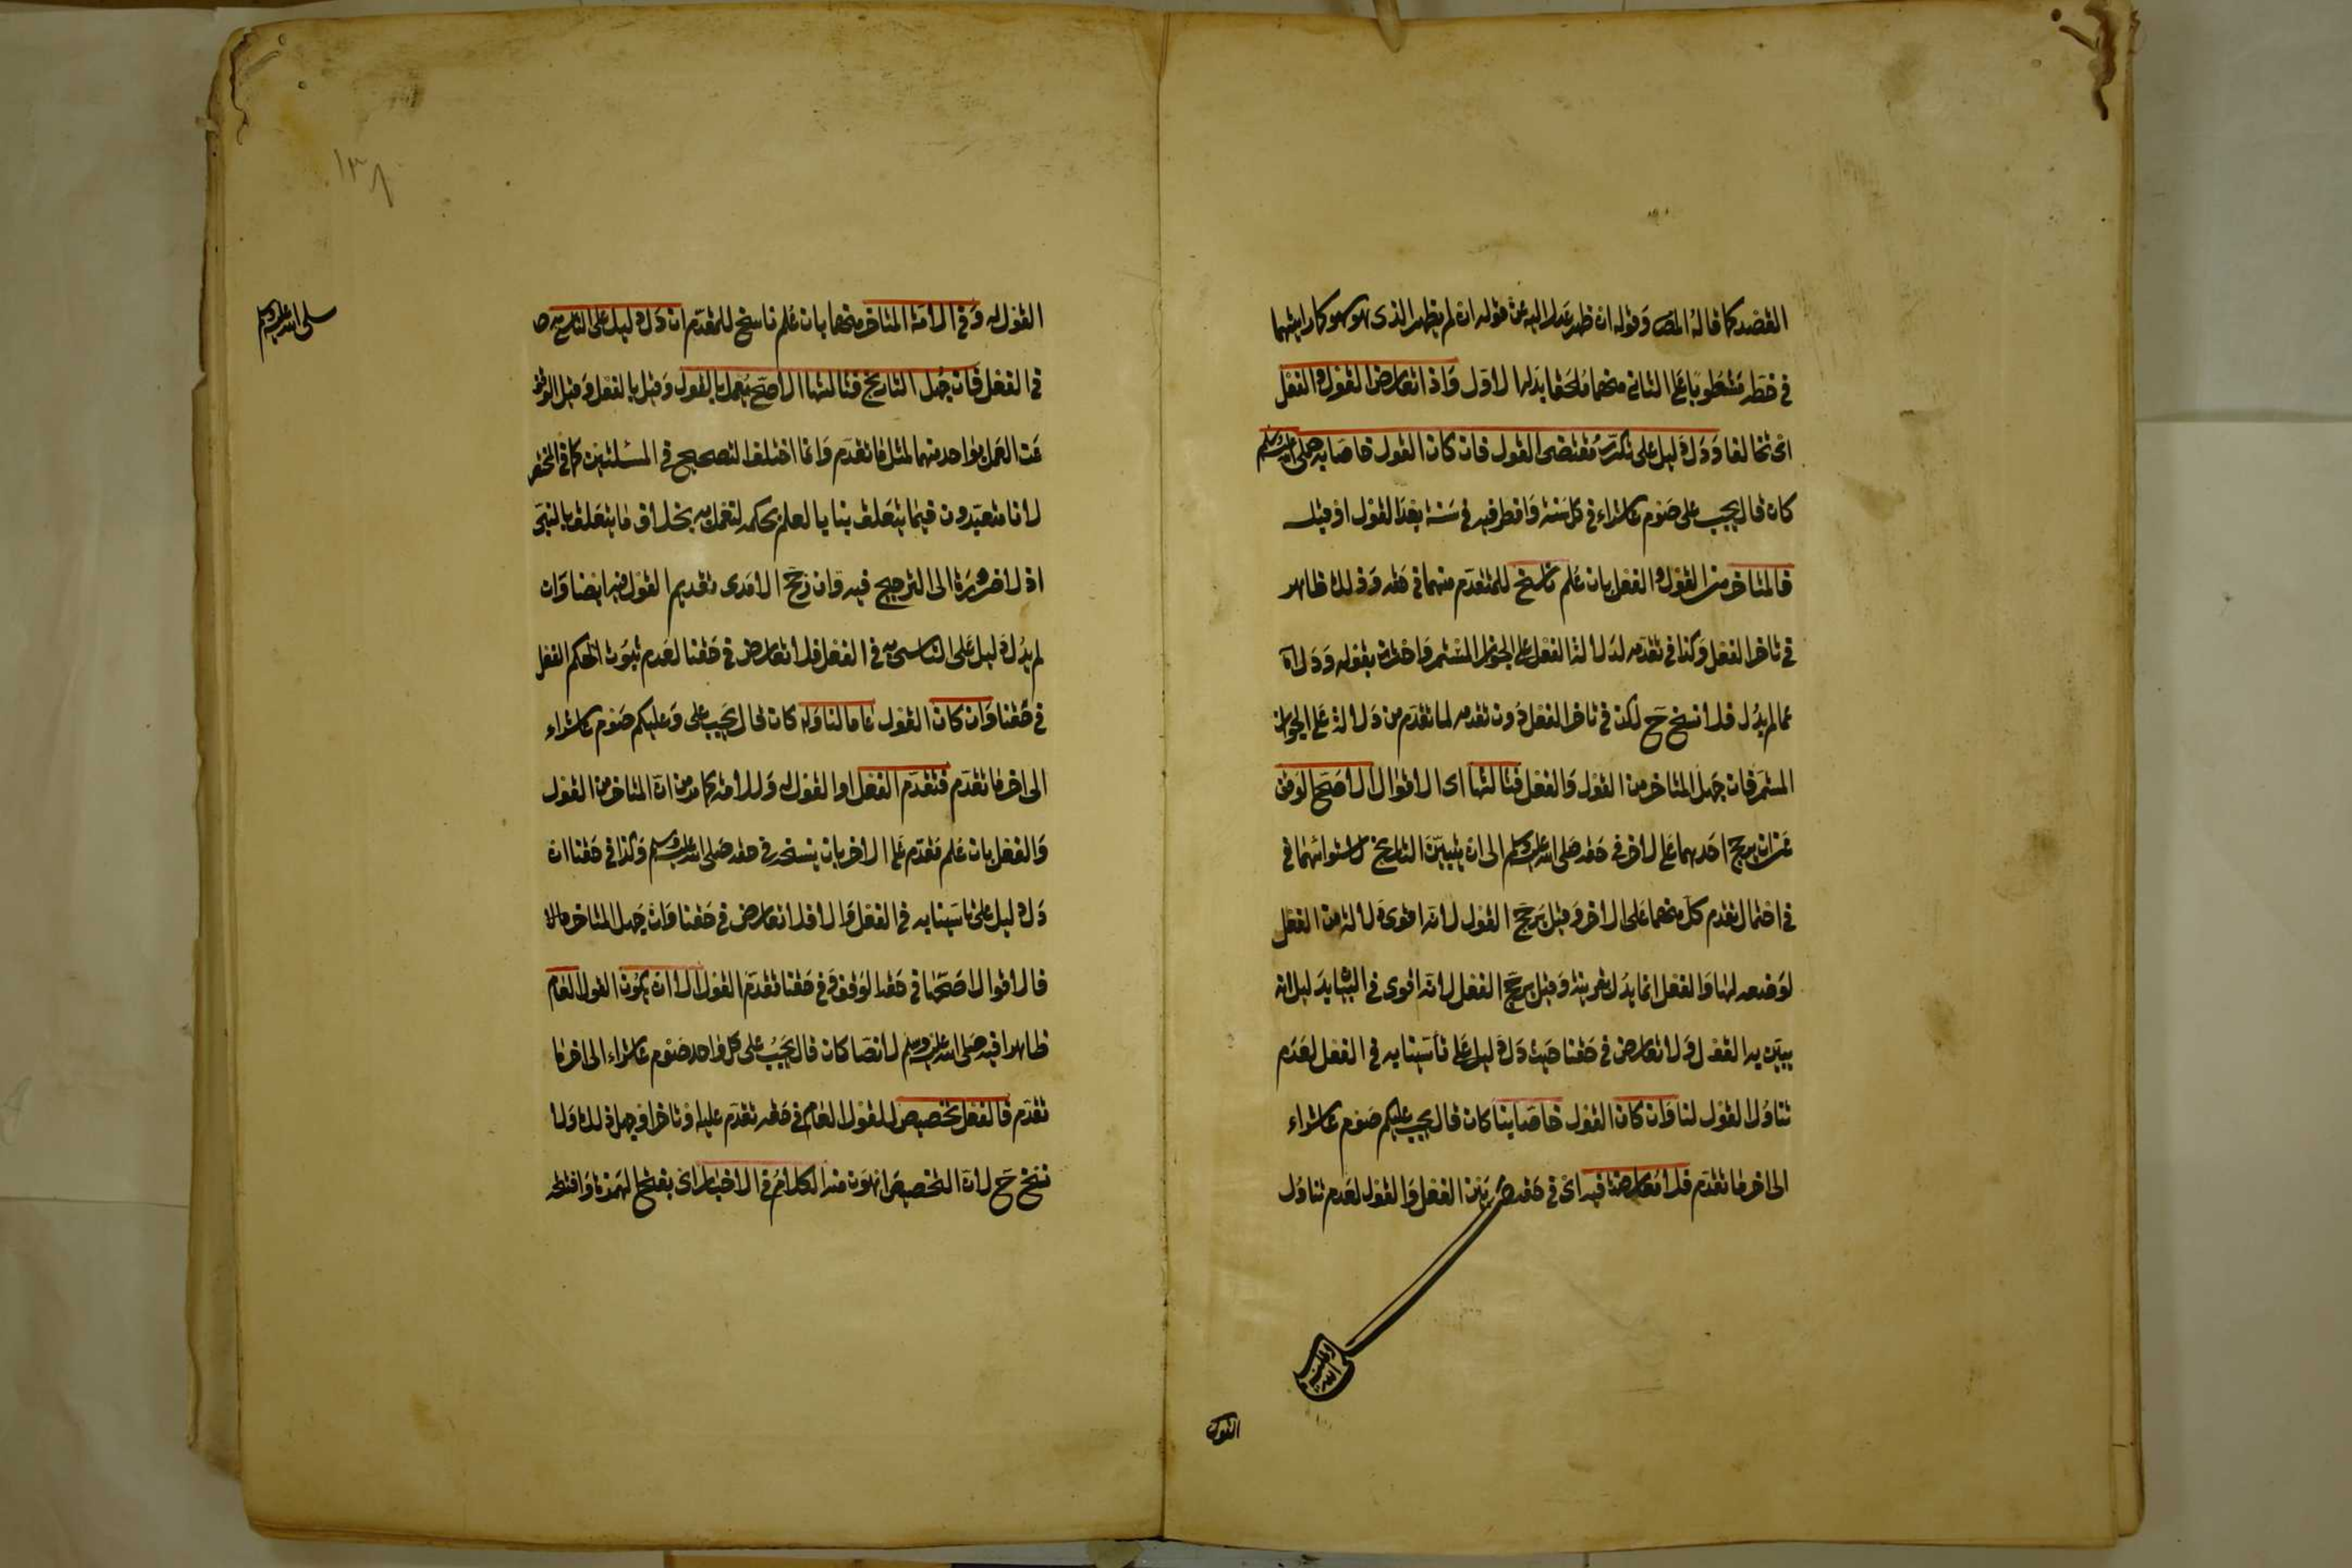 القصد كما قاله المص وقوله ان ظهر عدل اليه عن قوله ان لم يظهر الذى هو سهو كما رايتهما
فى خطه مشطوبا على الثانى منهما ملحقا بدله الاول واذا تعارض القول والفعل
اى تخالفا ودل دليل على تكرر مقتضى القول فان كان القول خاصا به صلى الله عليه وسلم
كان قال يجب على صوم عاشوراء فى كل سنة وافطر فيه فى سنة بعد القول او قبله
فالمتاخر من القول والفعل بان علم ناسخ للمتقدم منهما فى حقه وذلك ظاهر
فى تاخر الفعل وكذا فى تقدمه لدلالة الفعل على الجواز المستمر واحترز بقوله ودل اه
عما لم يدل فلا نسخ ح لكن فى تاخر الفعل دون تقدمه لما تقدم من دلالة على الجواز
المستمر فان جهل المتاخر من القول والفعل فثالثها اى الاقوال الاصح الوقف
عن ان يرجح احدهما على الاخر فى حقه صلى الله عليه وسلم الى ان يتبين التاريخ لاستوائهما فى
فى احتمال تقدم كل منهما على الاخر وقيل يرجح القول لانه اقوى دلالة من الفعل
لوضعه لها والفعل انما يدل بقرينة وقيل يرجح الفعل لانه اقوى فى البيان بدليل انه
يبين به القول ولا تعارض فى حقنا حيث دل دليل على تأسينا به فى الفعل لعدم
تناول القول لنا وان كان القول خاصا بنا كان قال يجب عليكم صوم عاشوراء
الى اخر ما تقدم فلا معارضة فيه اى فى حقه ص بين الفعل والقول لعدم تناول
القول
القول له وفى الامة المتاخر منهما بان علم ناسخ للمتقدم ان دل دليل على التاسى به ص
صلى الله عليه وسلم
فى الفعل فان جهل التاريخ فثالثها الاصح يعمل بالقول وقيل بالفعل وقيل الوقف
عن العمل بواحد منهما لمثل ما تقدم وانما اختلف التصحيح فى المسئلتين كما فى المختصر
لانا متعبدون فيما يتعلق بنا بالعلم بحكمه لنعمل به بخلاف ما يتعلق بالنبى
اذ لا ضرورة الى الترجيح فيه وان رجح الامدى تقديم القول فيه ايضا وان
لم يدل دليل على التاسى به فى الفعل فلا تعارض فى حقنا لعدم ثبوت الحكم الفعل
فى حقنا وان كان القول عاما لنا وله كان قال يجب على وعليكم صوم عاشوراء
الى اخر ما تقدم فتقدم الفعل او القول له وللامة كما مر من ان المتاخر من القول
والفعل بان علم متقدم على الاخر بان ينسخه فى حقه صلى الله عليه وسلم وكذا فى حقنا ان
دل دليل على تاسينا به فى الفعل والا فلا تعارض فى حقنا وان جهل المتاخر
فالاقوال اصحها فى حقه الوقف وفى حقنا تقدم القول الا ان يكون القول العام
ظاهرا فيه صلى الله عليه وسلم لا نصا كان قال يجب على كل واحد صوم عاشوراء الى اخر ما
تقدم فالفعل تخصيص للقول العام فى حقه تقدم عليه او تاخر او جهل ذلك ولا
نسخ ح لان التخصيص اهون منه الكلام فى الاخبار اى بفتح الهمزة وافتتحه
١٣٨